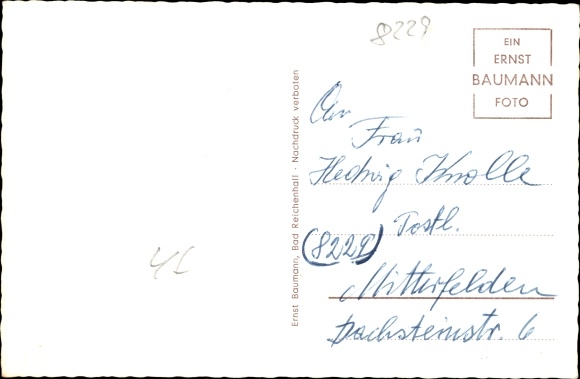 8229
EIN
ERNST
BAUMANN
FOTO
Ernst Baumann, Bad Reichenhall · Nachdruck verboten
An
Frau
Hedwig Knolle
(8229) Postl.
Mitterfelden
Dachsteinstr. 6